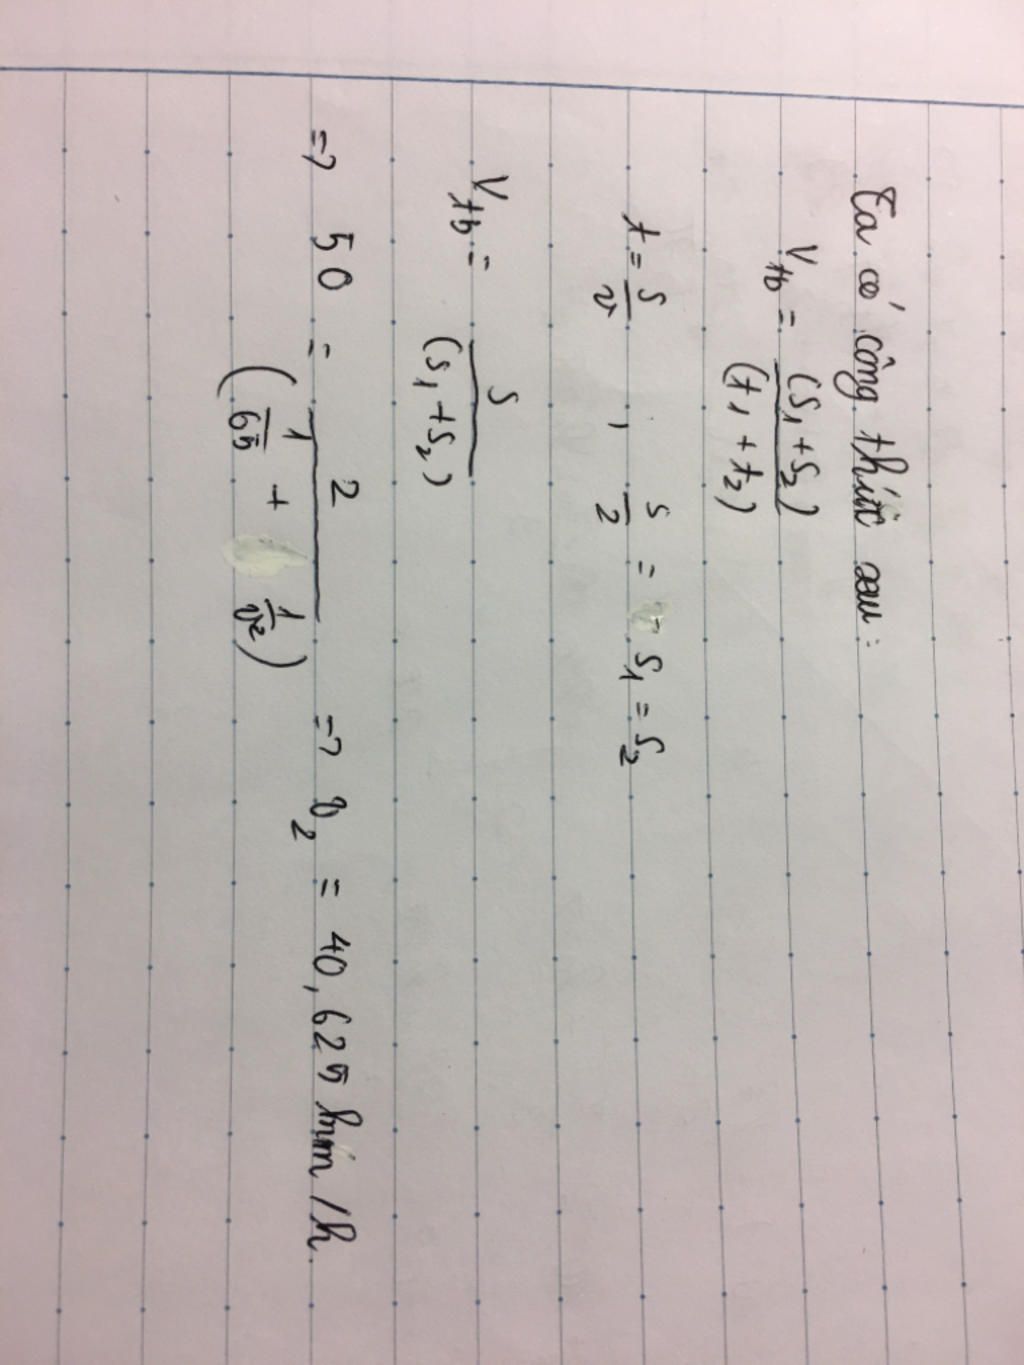 Ta có công thức sau:
V_tb = (S₁+S₂) / (t₁+t₂)
t = s/v , s/2 = S₁ = S₂
V_tb = S / (S₁+S₂)
=> 50 = 2 / (1/65 + 1/v²) => v₂ = 40,625 km/h.